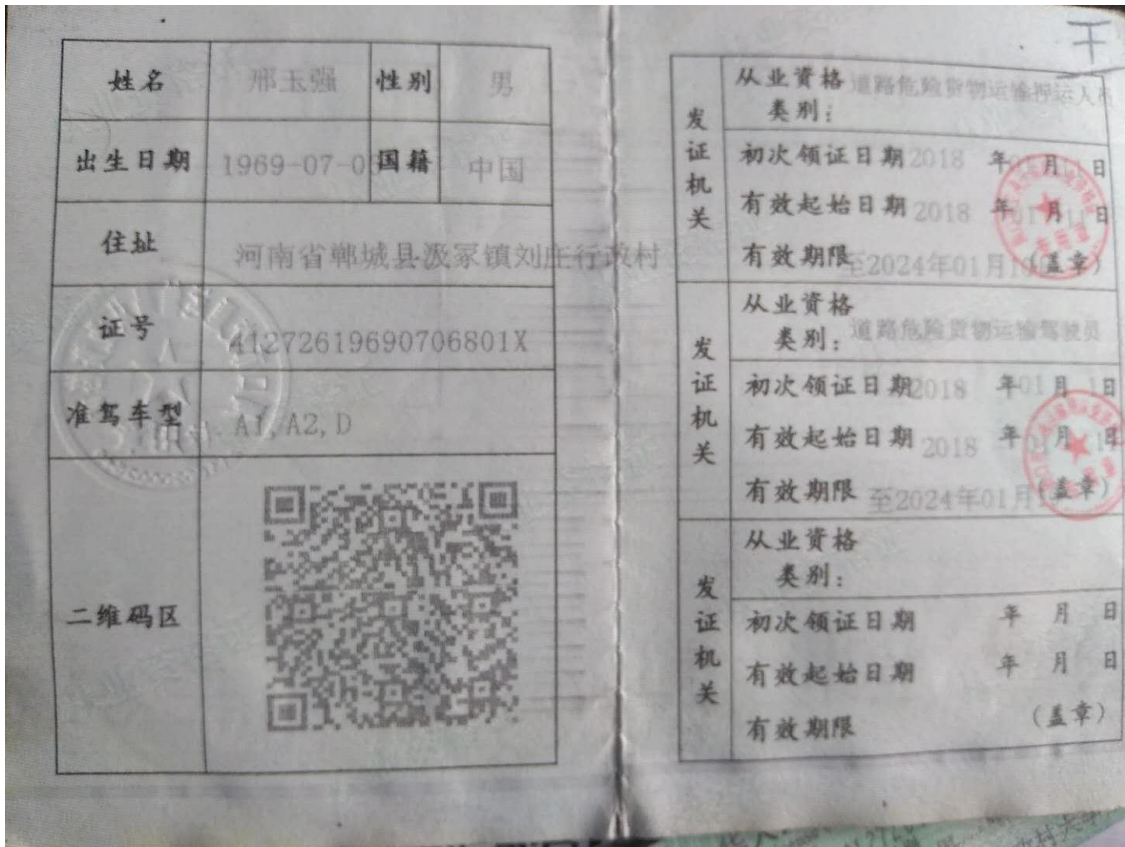 姓名 邢玉强 性别 男
出生日期 1969-07-0 国籍 中国
住址 河南省郸城县汲冢镇刘庄行政村
证号 41272619690706801X
准驾车型 A1,A2,D
二维码区
发证机关
从业资格类别: 道路危险货物运输押运人员
初次领证日期 2018 年 01 月 11 日
有效起始日期 2018 年 01 月 11 日
有效期限 至2024年01月10 (盖章)
发证机关
从业资格类别: 道路危险货物运输驾驶员
初次领证日期 2018 年 01 月 日
有效起始日期 2018 年 01 月 11
有效期限 至2024年01月 (盖章)
发证机关
从业资格类别:
初次领证日期 年 月 日
有效起始日期 年 月 日
有效期限 (盖章)